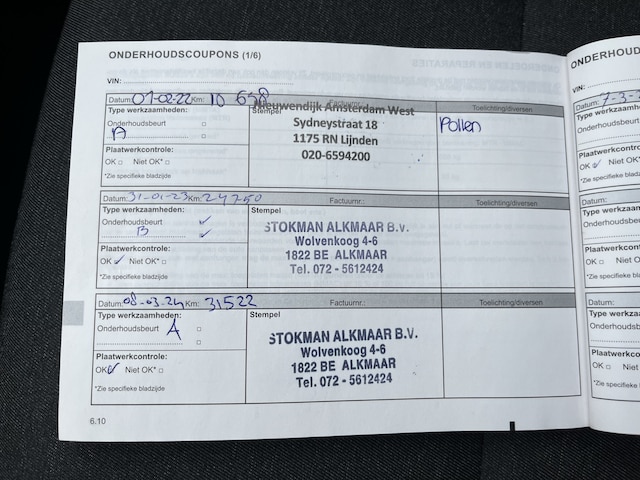 ONDERHOUDSCOUPONS (1/6)
VIN:
Datum: 01-02-22 Km: 10 638 Factuurnr.: Toelichting/diversen
Type werkzaamheden:
Onderhoudsbeurt
A
Plaatwerkcontrole:
OK Niet OK*
*Zie specifieke bladzijde
Stempel
Nieuwendijk Amsterdam West
Sydneystraat 18
1175 RN Lijnden
020-6594200
Pollen
Datum: 31-01-23 Km: 24750 Factuurnr.: Toelichting/diversen
Type werkzaamheden:
Onderhoudsbeurt ✓
B ✓
Plaatwerkcontrole:
OK ✓ Niet OK*
*Zie specifieke bladzijde
Stempel
STOKMAN ALKMAAR B.V.
Wolvenkoog 4-6
1822 BE ALKMAAR
Tel. 072 - 5612424
Datum: 08-03-24 Km: 31522 Factuurnr.: Toelichting/diversen
Type werkzaamheden:
Onderhoudsbeurt A
Plaatwerkcontrole:
OK ✓ Niet OK*
*Zie specifieke bladzijde
Stempel
STOKMAN ALKMAAR B.V.
Wolvenkoog 4-6
1822 BE ALKMAAR
Tel. 072 - 5612424
6.10
ONDERHOUD
VIN:
Datum: 7-3-2
Type werkzaam
Onderhoudsbeurt
Plaatwerkcontro
OK ✓ Niet
*Zie specifieke bla
Datum:
Type werkzaam
Onderhoudsb
Plaatwerkcon
OK Niet
*Zie specifieke